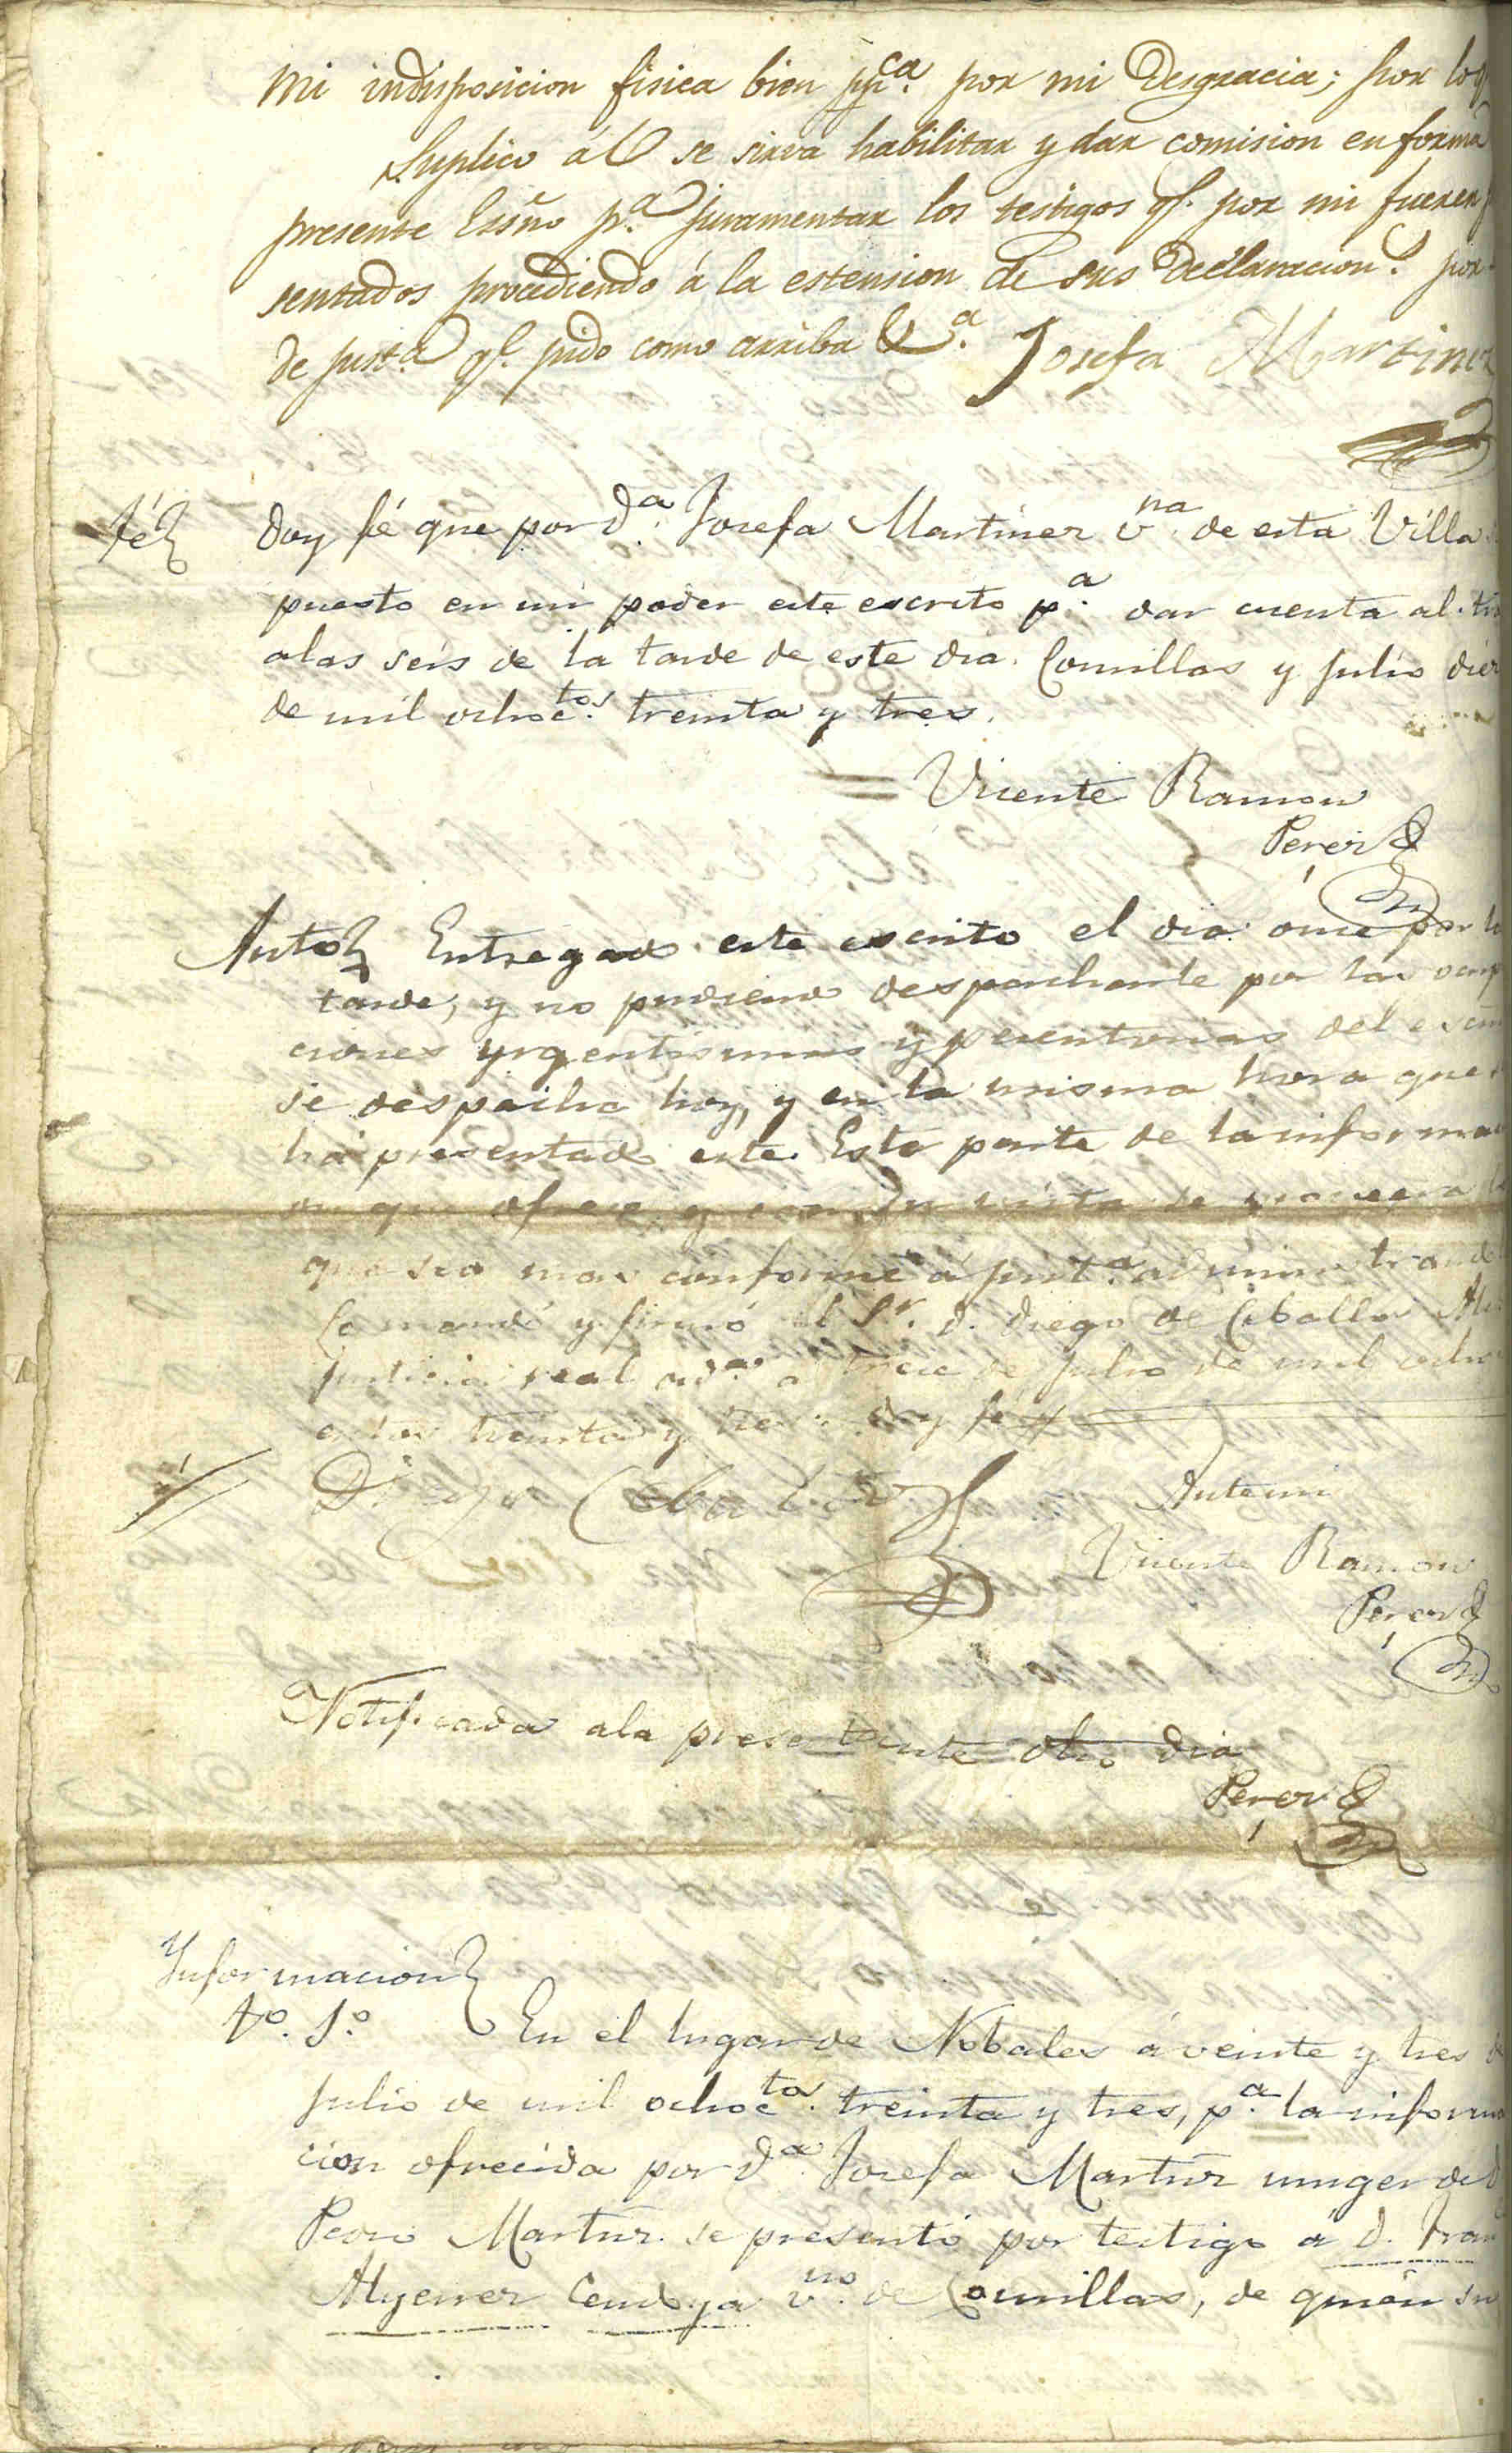 mi indisposicion fisica bien pp.ca por mi Desgracia; por lo q
Suplico á V se sirva habilitar y dar comision en forma
presente Essno p.a juramentar los testigos q.e por mi fueren
sentados procediendo á la estension de sus Declaracion.s por
de just.a q.e pido como arriba &.a Josefa Martinez
Fé Doy fé que por D.a Josefa Martinez v.na de esta Villa
puesto en mi poder este escrito p.a dar cuenta al tri
a las seis de la tarde de este dia. Comillas y Julio diez
de mil ochoc.tos treinta y tres.
Vicente Ramon
Perez
Auto Entregado este escrito el dia once por la
tarde, y no pudiendo despacharle por las ocup
ciones yrgentisimas y perentorias del escno
se despacha hoy, y en la misma hora que
ha presentado este. Esta parte de la informa
on que ofrece y con su vista se proveera
que sea mas conforme á just.a administrand
Lo mandó y firmó el S.r D. Diego de Ceballos Al
justicia real ord.a a trece de Julio de mil ocho
entos treinta y tres doy fé
Diego Ceballos Antemi
Vicente Ramon
Perez
Notificada a la presentante otro dia
Perez
Informacion
t.o 1.o En el lugar de Nobales á veinte y tres d
Julio de mil ochoc.tos treinta y tres, p.a la informa
cion ofrecida por D.a Josefa Martinz muger de D
Pedro Martinz. se presentó por testigo a D. Fran
de Comillas, de quien su